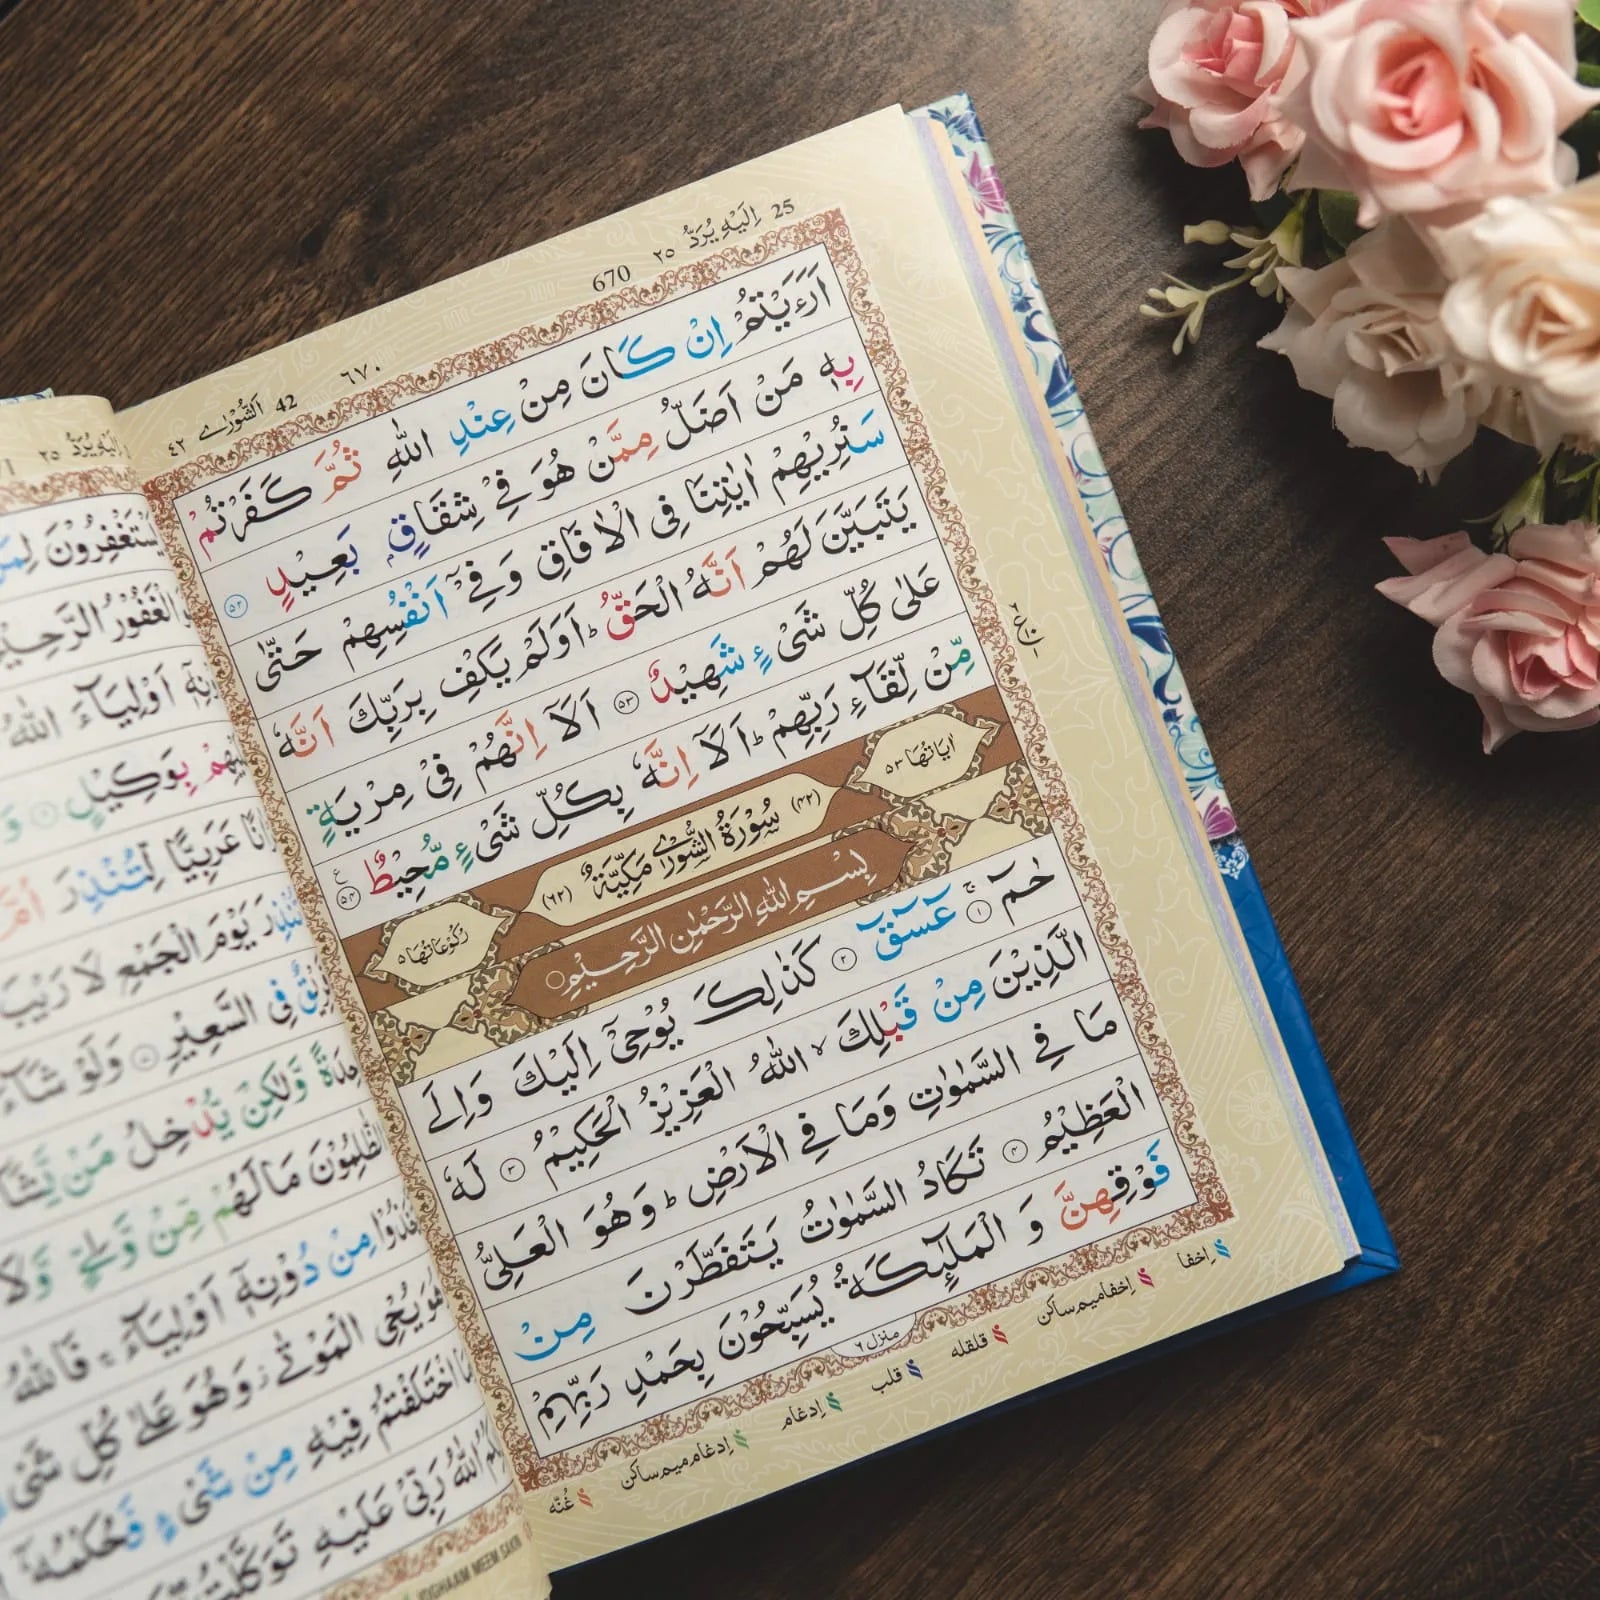 25 اِلَيْهِ يُرَدُّ ٢٥
670
٦٧٠
42 اَلشُّوْرٰى ٤٢
اَرَءَيْتُمْ اِنْ كَانَ مِنْ عِنْدِ اللّٰهِ ثُمَّ كَفَرْتُمْ
بِهٖ مَنْ اَضَلُّ مِمَّنْ هُوَ فِيْ شِقَاقٍۭ بَعِيْدٍ ۝٥٢
سَنُرِيْهِمْ اٰيٰتِنَا فِى الْاٰفَاقِ وَفِيْٓ اَنْفُسِهِمْ حَتّٰى
يَتَبَيَّنَ لَهُمْ اَنَّهُ الْحَقُّ ؕ اَوَلَمْ يَكْفِ بِرَبِّكَ اَنَّهٗ
عَلٰى كُلِّ شَىْءٍ شَهِيْدٌ ۝٥٣ اَلَآ اِنَّهُمْ فِيْ مِرْيَةٍ
مِّنْ لِّقَآءِ رَبِّهِمْ ؕ اَلَآ اِنَّهٗ بِكُلِّ شَىْءٍ مُّحِيْطٌ ۝٥٤ ع
اٰيَاتُهَا ٥٣
(٤٢) سُوْرَةُ الشُّوْرٰى مَكِّيَّةٌ (٦٢)
رُكُوْعَاتُهَا ٥
بِسْمِ اللّٰهِ الرَّحْمٰنِ الرَّحِيْمِ
حٰمٓ ۝١ عٓسٓقٓ ۝٢ كَذٰلِكَ يُوْحِيْٓ اِلَيْكَ وَاِلَى
الَّذِيْنَ مِنْ قَبْلِكَ ۙ اللّٰهُ الْعَزِيْزُ الْحَكِيْمُ ۝٣ لَهٗ
مَا فِي السَّمٰوٰتِ وَمَا فِي الْاَرْضِ ؕ وَهُوَ الْعَلِيُّ
الْعَظِيْمُ ۝٤ تَكَادُ السَّمٰوٰتُ يَتَفَطَّرْنَ مِنْ
فَوْقِهِنَّ وَ الْمَلٰٓئِكَةُ يُسَبِّحُوْنَ بِحَمْدِ رَبِّهِمْ
منزل ٦
اِخفا
اِخفا ميم ساكن
قلقله
قلب
اِدغام
اِدغام ميم ساكن
غُنّه
اِلَيْهِ يُرَدُّ ٢٥
يَسْتَغْفِرُوْنَ
الْغَفُوْرُ الرَّحِيْمُ
اَوْلِيَآءَ اللّٰهُ
بِوَكِيْلٍ
عَرَبِيًّا لِّتُنْذِرَ
يَوْمَ الْجَمْعِ لَا رَيْبَ
فِى السَّعِيْرِ وَلَوْ شَآءَ
وَّلٰكِنْ يُّدْخِلُ مَنْ يَّشَآءُ
مَا لَهُمْ مِّنْ وَّلِيٍّ وَّلَا
مِنْ دُوْنِهٖٓ اَوْلِيَآءَ ۚ فَاللّٰهُ
يُحْيِ الْمَوْتٰى ؗ وَهُوَ عَلٰى كُلِّ شَىْءٍ
اخْتَلَفْتُمْ فِيْهِ مِنْ شَىْءٍ فَحُكْمُهٗٓ
اللّٰهُ رَبِّيْ عَلَيْهِ تَوَكَّلْتُ
MEEM SAKIN